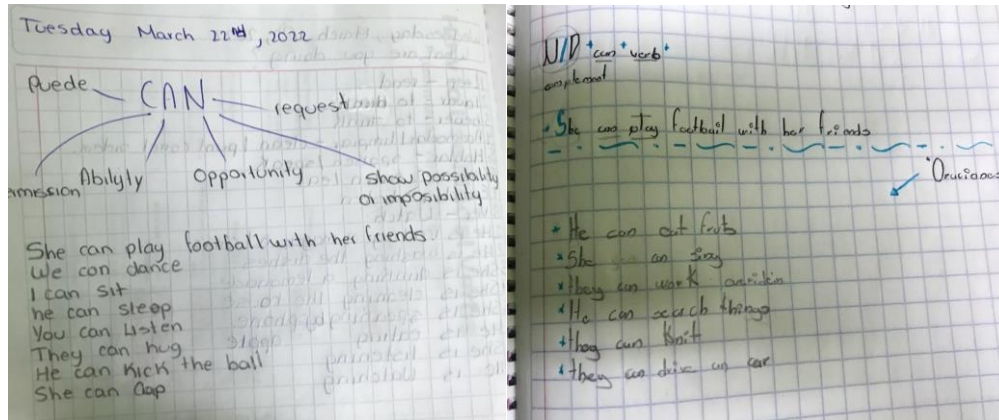 Tuesday March 22nd, 2022
Puede
CAN
request
mission
Abilyty
Opportunity
Show possibility
or imposibility
She can play football with her friends
We can dance
I can sit
he can sleep
You can Listen
They can hug
He can Kick the ball
She can Clap
N/P + can + verb +
complement
She can play football with her friends
Oraciones
* He can eat fruts
* She can sing
* they can work
* He can seach things
* they can Knit
* they can drive un car